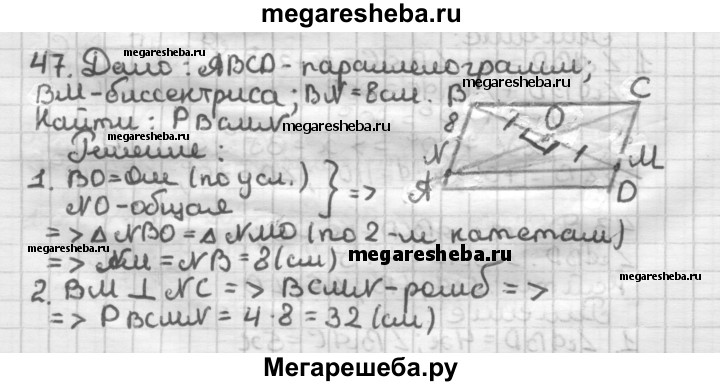 megaresheba.ru
47. Дано: ABCD - параллелограмм;
megaresheba.ru
BM - биссектриса; BN = 8 см.
megaresheba.ru
Найти: P BCMN
megaresheba.ru
Решение:
1. BO = OM (по усл.) } =>
NO - общая
=> △NBO = △NMO (по 2-м катетам)
megaresheba.ru
=> NM = NB = 8 (см)
megaresheba.ru
2. BM ⊥ NC => BCMN - ромб =>
megaresheba.ru
=> P BCMN = 4 · 8 = 32 (см)
B
C
8
O
N
M
A
D
Мегарешеба.ру